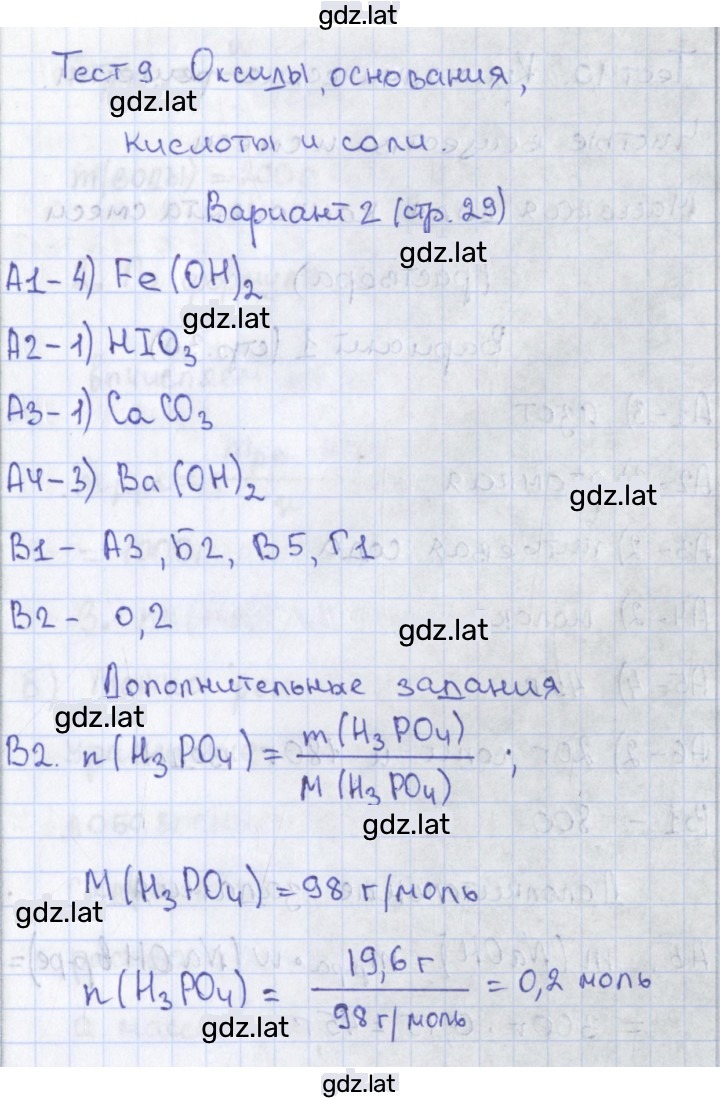 gdz.lat
Тест 9 Оксиды, основания,
gdz.lat
кислоты и соли.
Вариант 2 (стр. 29)
gdz.lat
А1 - 4) Fe(OH)₂
gdz.lat
А2 - 1) HIO₃
А3 - 1) CaCO₃
А4 - 3) Ba(OH)₂
gdz.lat
В1 - А3, Б2, В5, Г1
В2 - 0,2
gdz.lat
Дополнительные задания
gdz.lat
В2. n(H₃PO₄) = m(H₃PO₄) / M(H₃PO₄);
gdz.lat
M(H₃PO₄) = 98 г/моль
gdz.lat
n(H₃PO₄) = 19,6 г / 98 г/моль = 0,2 моль
gdz.lat
gdz.lat